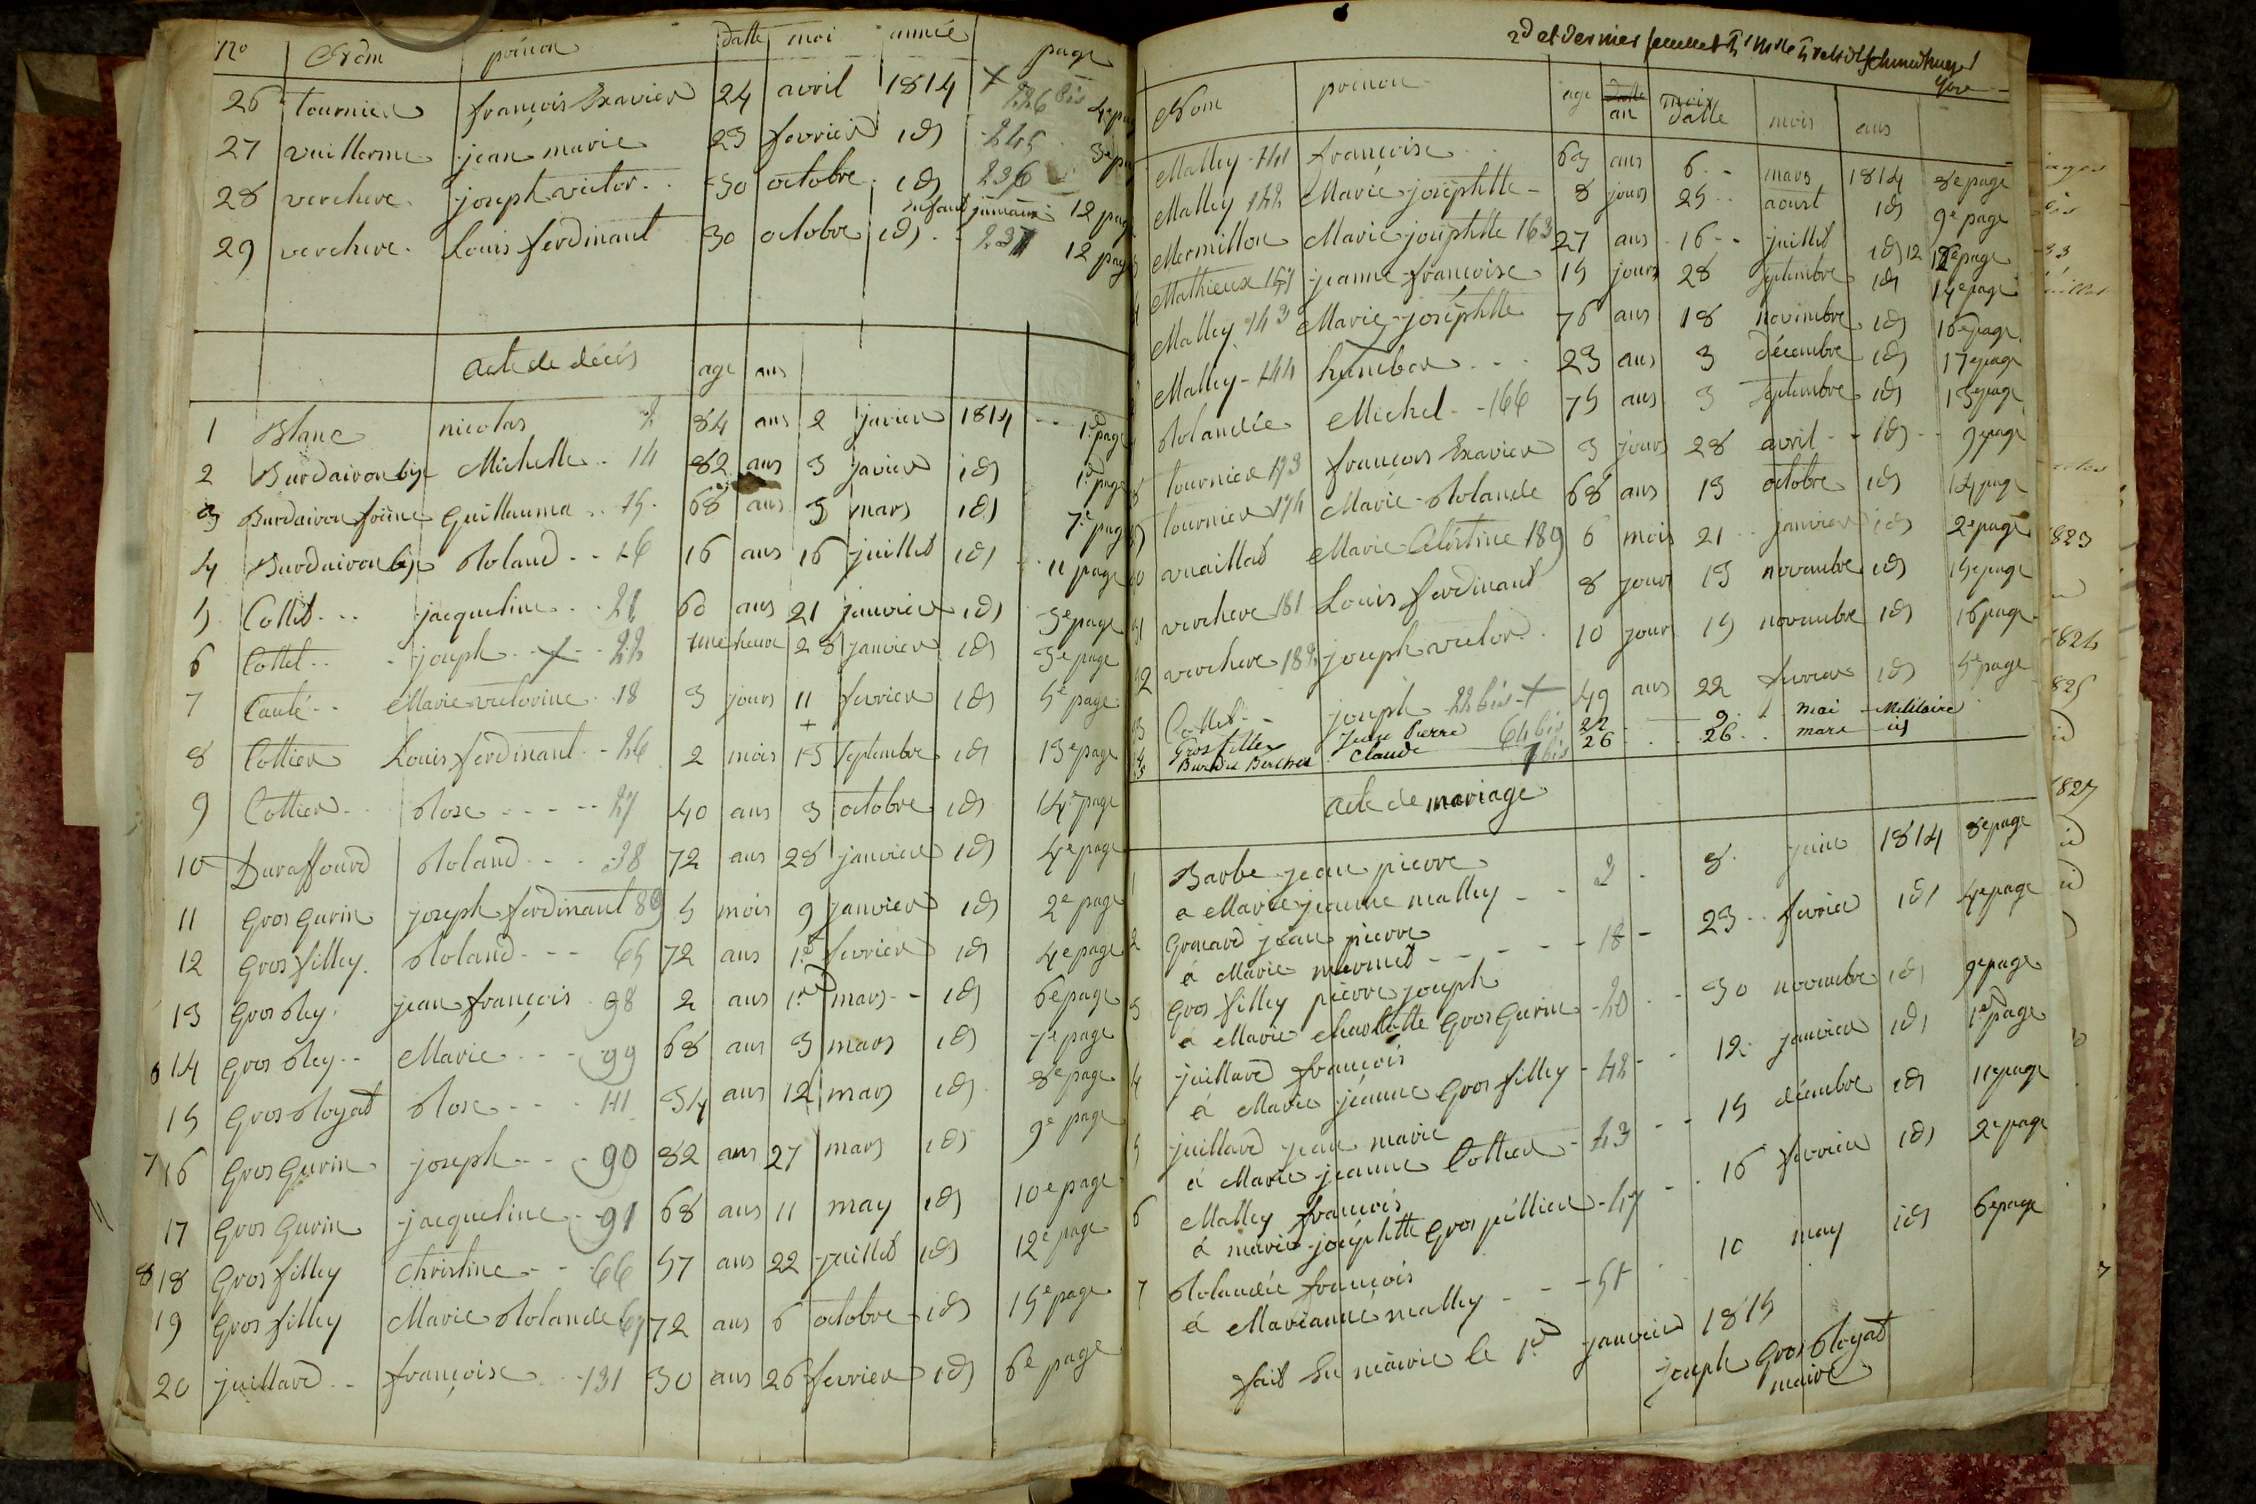 No Nom prénon datte moi année page
26 tournier françois Exavier 24 avril 1814 + 226 bis 4e pa
27 vuillerme jean marie 23 fevrier idn 245 3e pa
28 verchere joseph victor 30 octobre idn 236 12 page
enfant jumaux
29 verchere Louis ferdinant 30 octobre idn 237 12 page
acte de décès age ans
1 Blanc nicolas 84 ans 2 javier 1814 1er page
2 Burdairon bize Michelle 14 82 ans 3 javier idn 1er page
3 Burdairon Guillauma 15 68 ans 3 mars idn 7e page
4 Burdairon bize Roland 16 16 ans 16 juillet idn 11 page
5 Collet jacqueline 21 60 ans 21 janvier idn 3e page
6 Collet joseph + 22 une heure 28 janvier idn 3e page
7 Cauté Marie victorine 18 3 jours 11 fevrier idn 5e page
8 Cottier Louis ferdinant 26 2 mois 13 septembre idn 13e page
9 Cottier Rose 27 40 ans 3 octobre idn 14e page
10 Duraffourd Roland 38 72 ans 28 janvier idn 4e page
11 Gros Gurin joseph ferdinant 89 5 mois 9 janvier idn 2e page
12 Gros filley Roland 65 72 ans 1er fevrier idn 4e page
13 Gros Rey jean françois 98 2 ans 1er mars idn 6e page
14 Gros Rey Marie 99 68 ans 3 mars idn 7e page
15 Gros Royat Rose 111 34 ans 12 mars idn 8e page
16 Gros Gurin joseph 90 82 ans 27 mars idn 9e page
17 Gros Gurin jacqueline 91 68 ans 11 may idn 10e page
18 Gros filley Christine 66 57 ans 22 juillet idn 12e page
19 Gros filley Marie Rolande 67 72 ans 6 octobre idn 15e page
20 juillard françoise 131 30 ans 26 fevrier idn 6e page
2d et dernier feuillet
Nom prénon age an mois datte mois ans
Malley 141 françoise 63 ans 6 mars 1814 8e page
Malley 142 Marie joséphtte 8 jours 25 aoust idn 9e page
Mermillon Marie joséphtte 163 27 ans 16 juillet idn 12 12e page
Mathieux 157 jeanne françoise 15 jours 28 septembre idn 14e page
Malley 143 Marie joséphtte 76 ans 18 novimbre idn 16e page
Malley 144 humber 23 ans 3 décembre idn 17e page
Rolandée Michel 166 75 ans 3 septembre idn 13e page
8 tournier 173 françois Exavier 3 jours 28 avril idn 9 page
9 tournier 174 Marie Rolande 68 ans 13 octobre idn 14 page
10 vuaillat Marie Albertine 189 6 mois 21 janvier idn 2e page
11 verchere 181 Louis ferdinant 8 jours 13 novembre idn 15e page
12 verchere 182 joseph victor 10 jours 15 novimbre idn 16 page
13 Collet joseph 22 bis + 49 ans 22 fevrier idn 5e page
14 Gros filley Jean Pierre 64 bis 22 2 mai Militaire
15 Claude 7 bis 26 26 mars id
acte de mariage
1 Barbe jean pierre
a Marie jeanne malley 2 8 juin 1814 8e page
2 Grenard jean pierre
á Marie mermet 18 23 fevrier idn 4e page
3 Gros filley pierre joseph
á Marie charllotte Gros Gurin 20 30 novembre idn 9e page
4 juillard françois
á Marie jeanne Gros filley 42 12 janvier idn 1er page
5 juillard jean marie
á Marie jeanne Cottier 43 15 décembre idn 11e page
6 Malley françois
á marie joséphtte Gros pillier 47 16 fevrier idn 2e page
7 Rolandée françois
á Marianne malley 51 10 may idn 6e page
fait En mairie le 1er janvier 1815
joseph Gros Royat
maire